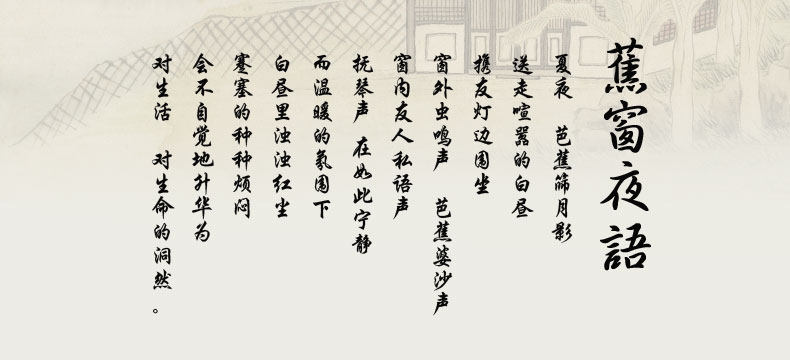 蕉窗夜語
夏夜 芭蕉筛月影
送走喧嚣的白昼
携友灯边围坐
窗外虫鸣声 芭蕉婆沙声
窗内友人私语声
抚琴声 在如此宁静
而温暖的氛围下
白昼里浊浊红尘
蹇塞的种种烦闷
会不自觉地升华为
对生活 对生命的洞然。